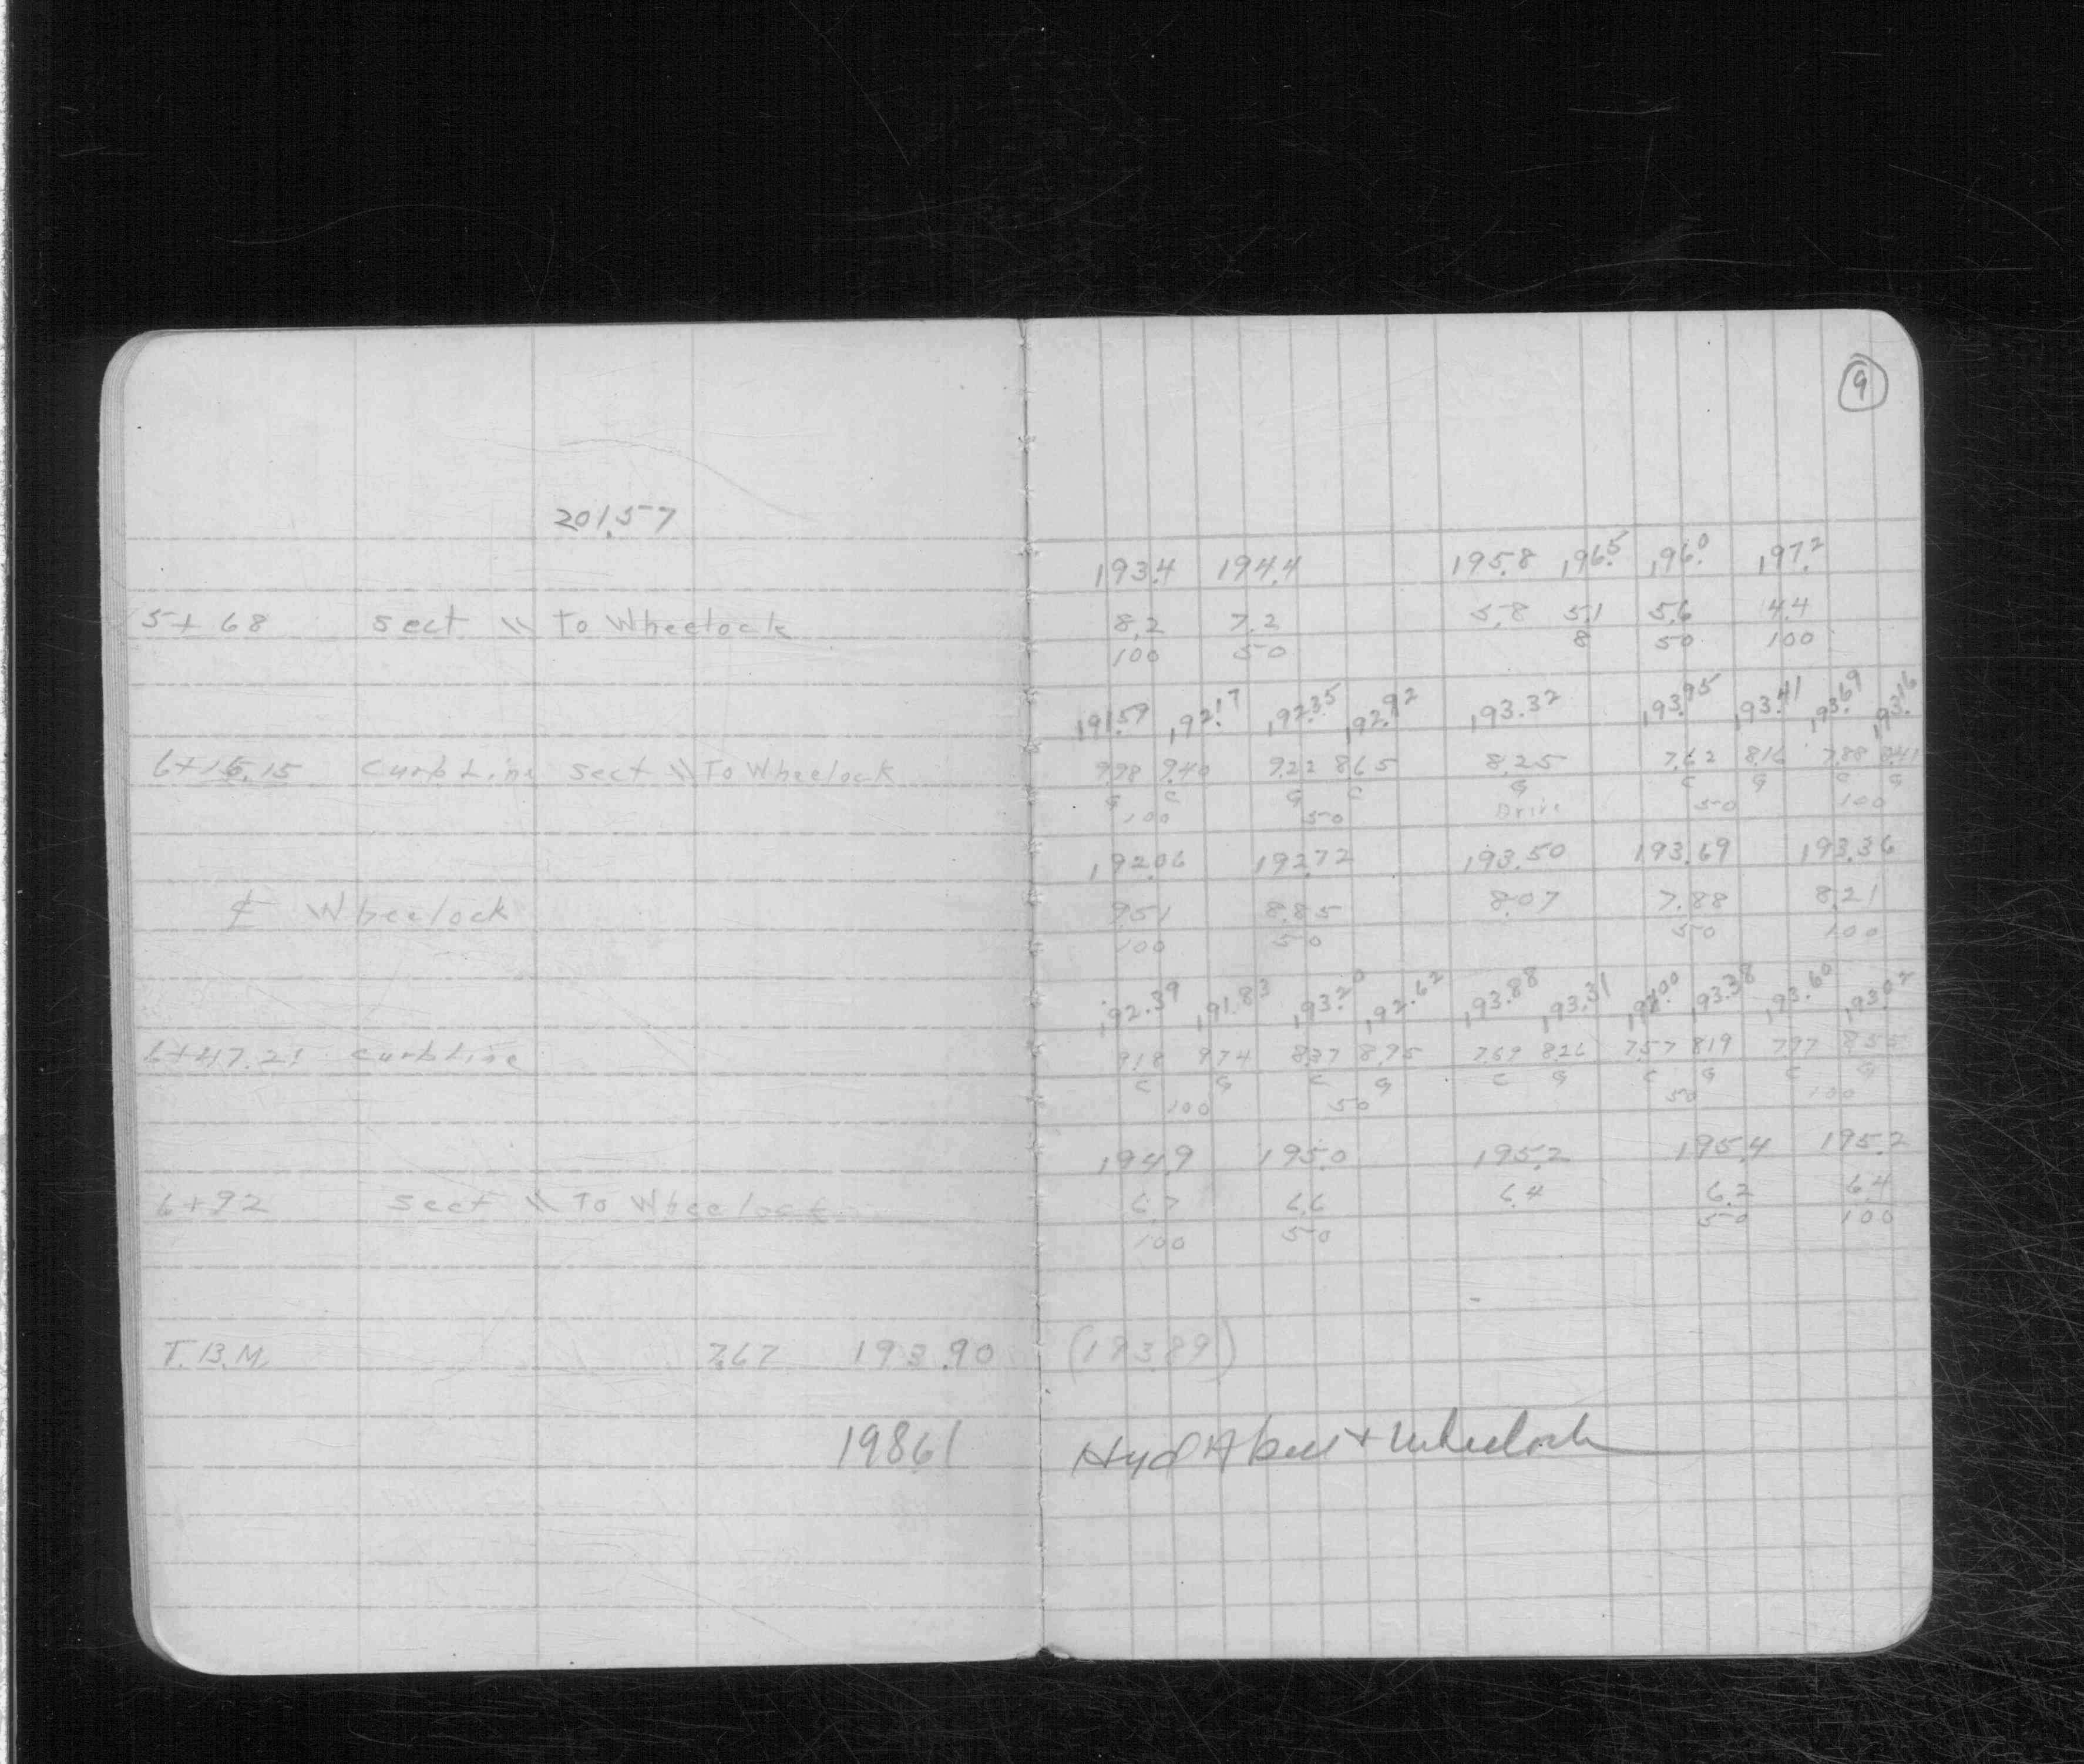 9
201.57
193.4 194.4 195.8 196.5 196.0 197.2
5+68 sect \\ To Wheelock 8.2 7.2 5.8 5.1 5.6 4.4
100 50 8 50 100
191.59 192.17 192.35 192.92 193.32 193.95 193.41 193.69 193.16
6+15.15 Curb Line sect \\ To Wheelock 9.98 9.40 9.22 8.65 8.25 7.62 8.16 7.88 8.41
G C G C G C G C G
100 50 Drive 50 100
192.06 192.72 193.50 193.69 193.36
℄ Wheelock 9.51 8.85 8.07 7.88 8.21
100 50 50 100
192.39 191.83 193.20 192.62 193.88 193.31 194.00 193.38 193.60 193.02
6+47.21 Curb Line 9.18 9.74 8.37 8.95 7.69 8.26 7.57 8.19 7.97 8.55
C G C G C G C G C G
100 50 50 100
194.9 195.0 195.2 195.4 195.2
6+92 sect \\ To Wheelock 6.7 6.6 6.4 6.2 6.4
100 50 50 100
T.B.M. 7.67 193.90 (193.89)
198.61 Hyd Abell + Wheelock